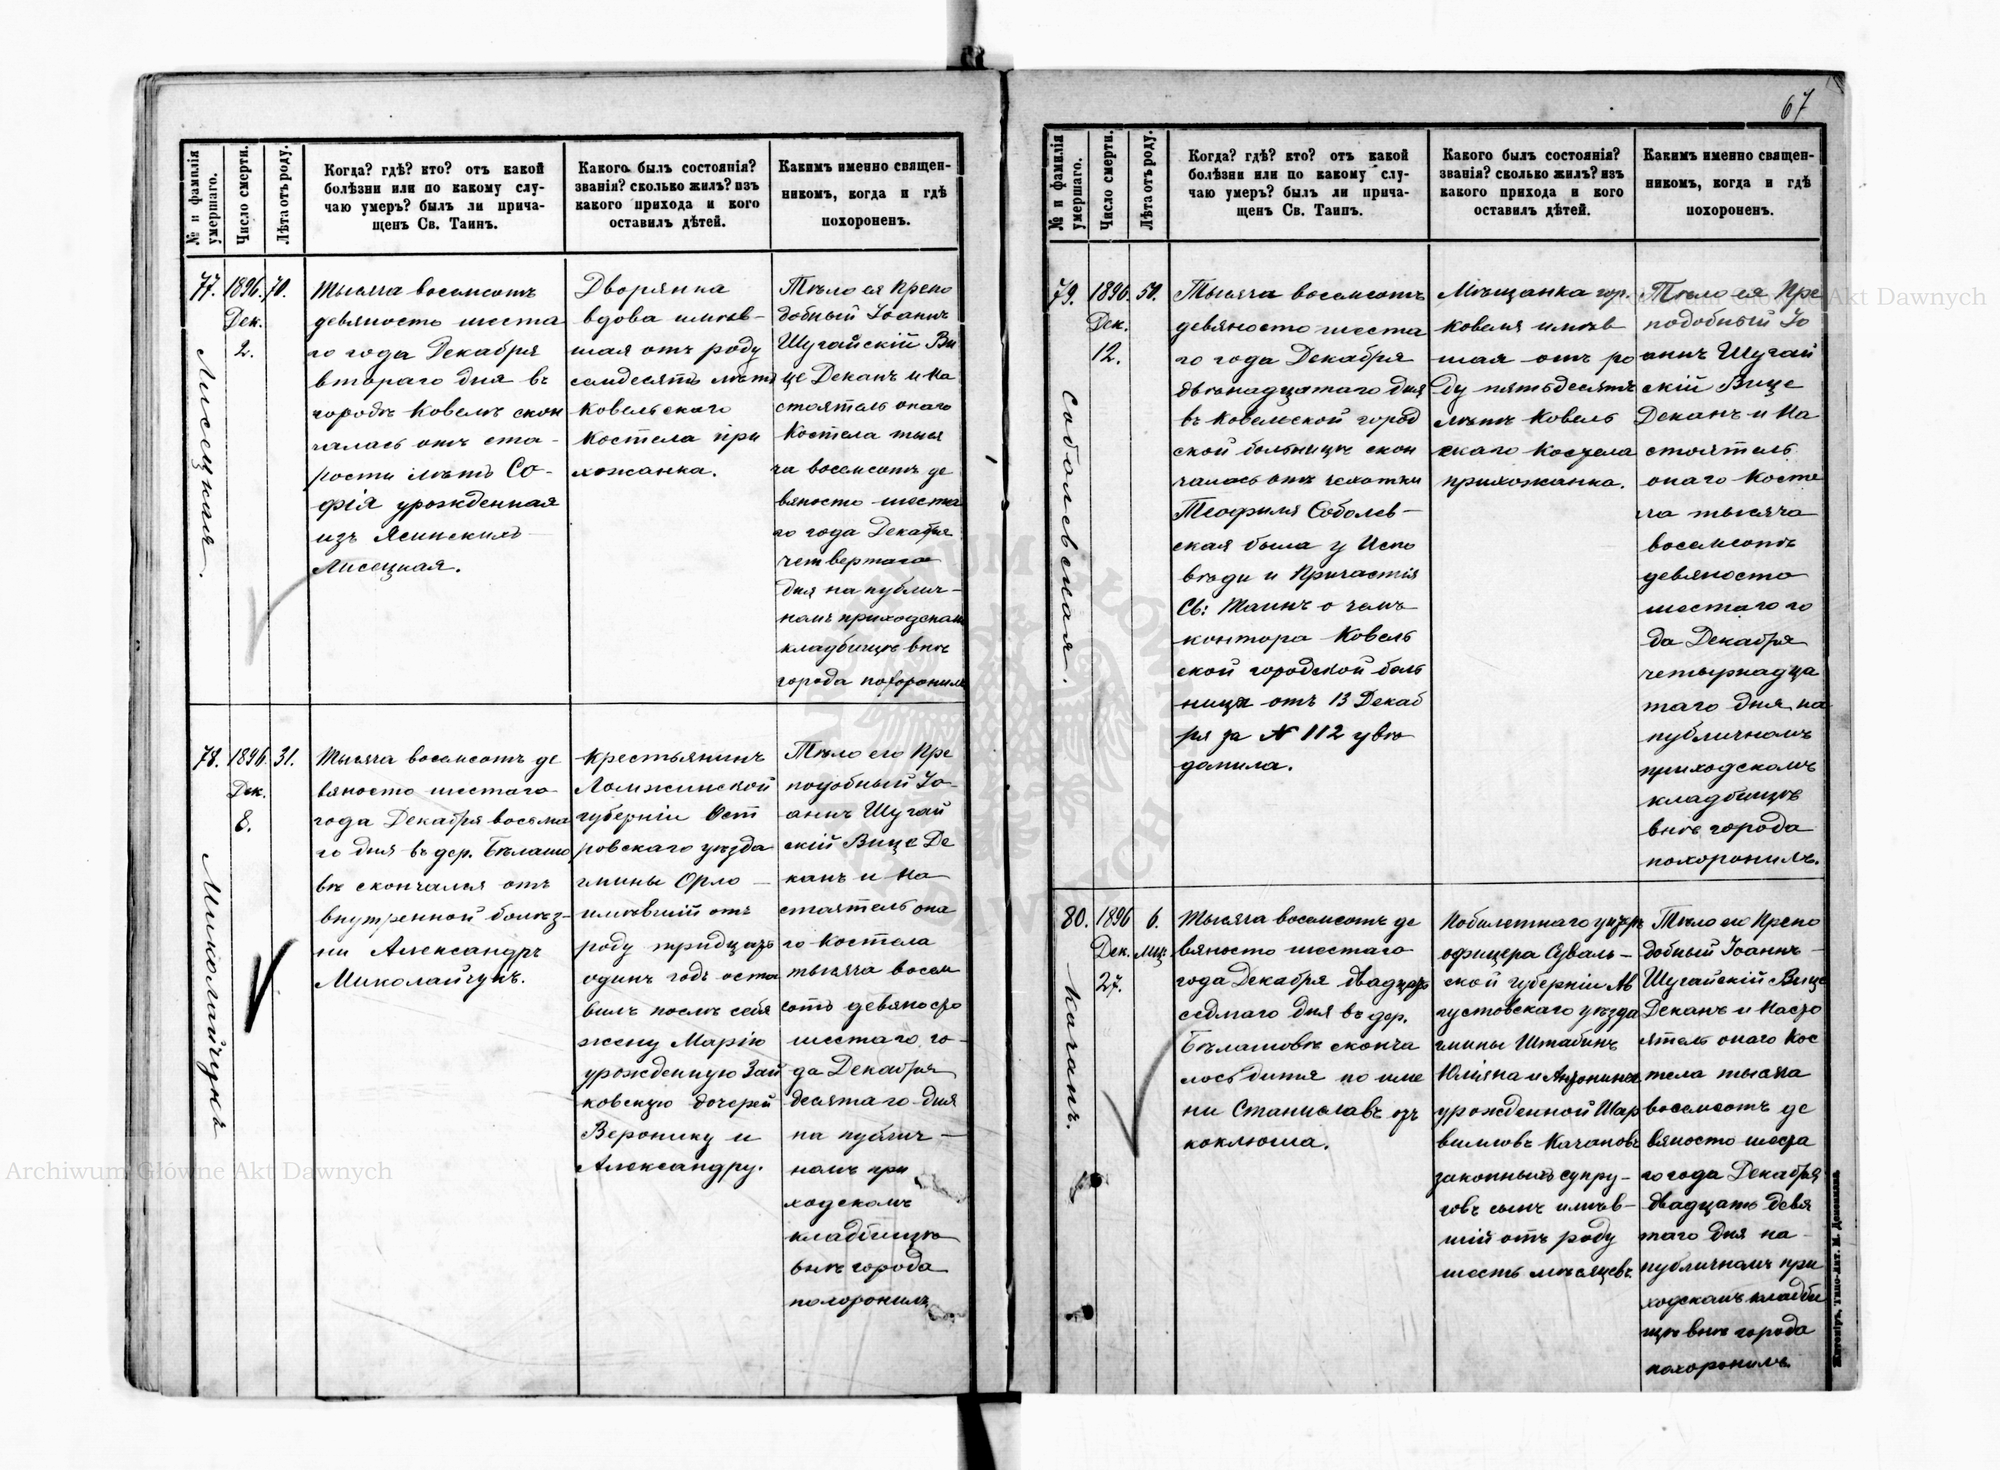 67
№ и фамилія умершаго.
Число смерти.
Лѣта отъ роду.
Когда? гдѣ? кто? отъ какой
болѣзни или по какому слу-
чаю умеръ? былъ ли прича-
щенъ Св. Таинъ.
Какого былъ состоянія?
званія? сколько жилъ? изъ
какого прихода и кого
оставилъ дѣтей.
Какимъ именно священ-
никомъ, когда и гдѣ
похороненъ.
77.
Лисецкая.
1896.
Дек.
2.
70.
Тысяча восемсотъ
девяность шеста
го года Декабря
втораго дня въ
городѣ Ковелѣ скон
чалась отъ ста-
рости лѣтъ Со-
фія урожденная
изъ Ясинскихъ
Лисецкая.
Дворянка
вдова имѣв-
шая отъ роду
семдесятъ лѣтъ
Ковельскаго
Костела при
хожанка.
Тѣло ея Препо
добный Іоаннъ
Шугайскій Ви
це Деканъ и На
стоятель онаго
Костела тыся
ча восемсотъ де
вяносто шеста
го года Декабря
четвертаго
дня на публич-
номъ приходскомъ
кладбищѣ внѣ
города похоронилъ
78.
Миколайчукъ
1896
Дек.
8.
31.
Тысяча восемсотъ де
вяносто шестаго
года Декабря восьма
го дня въ дер. Бѣлашо
вѣ скончался отъ
внутренной болѣз-
ни Александръ
Миколайчукъ.
Крестьянинъ
Ломжинской
губерніи Ост
ровскаго уѣзда
гмины Орло
имѣвшій отъ
роду тридцать
одинъ годъ оста
вилъ послѣ себя
жену Марію
урожденную Зай
ковскую дочерей
Веронику и
Александру.
Тѣло его Пре
подобный Іо-
аннъ Шугай
скій Вице Де
канъ и На
стоятель она
го Костела
тысяча восем
сотъ девяносто
шестаго го-
да Декабря
десятаго дня
на публич-
номъ при
ходскомъ
кладбищѣ
внѣ города
похоронилъ
№ и фамилія умершаго.
Число смерти.
Лѣта отъ роду.
Когда? гдѣ? кто? отъ какой
болѣзни или по какому слу-
чаю умеръ? былъ ли прича-
щенъ Св. Таинъ.
Какого былъ состоянія?
званія? сколько жилъ? изъ
какого прихода и кого
оставилъ дѣтей.
Какимъ именно священ-
никомъ, когда и гдѣ
похороненъ.
79.
Соболевская.
1896.
Дек.
12.
50.
Тысяча восемсотъ
девяносто шеста
го года Декабря
двѣнадцатаго дня
въ Ковельской город
ской больницѣ скон
чалась отъ чехотки
Теофиля Соболев-
ская была у Испо
вѣди и Причастія
Св: Таинъ о чемъ
контора Ковель
ской городской боль
ницы отъ 13 Декаб
ря за № 112 увѣ
домила.
Мѣщанка гор.
Ковеля имѣв
шая отъ ро
ду пятьдесятъ
лѣтъ Ковель
скаго Костела
прихожанка.
Тѣло ея Пре
подобный Іо
аннъ Шугай
скій Вице
Деканъ и На
стоятель
онаго Косте
ла тысяча
восемсотъ
девяносто
шестаго го
да Декабря
четырнадца
таго дня на
публичномъ
приходскомъ
кладбищѣ
внѣ города
похоронилъ.
80.
Качанъ.
1896
Дек.
27.
6.
Мщ.
Тысяча восемсотъ де
вяносто шестаго
года Декабря двадцать
седмаго дня въ дер.
Бѣлашовѣ сконча
лось дитя по име
ни Станиславъ отъ
коклюша.
Побилетнаго унтеръ
офицера Суваль-
ской губерніи Ав
густовскаго уѣзда
гмины Штабинъ
Юліяна и Антонины
урожденной Шар
виловъ Качановъ
законныхъ супру-
говъ сынъ имѣв-
шій отъ роду
шесть мѣсяцевъ.
Тѣло его Препо
добный Іоаннъ
Шугайскій Вице
Деканъ и Насто
ятель онаго Кос
тела тысяча
восемсотъ де
вяносто шеста
го года Декабря
двадцать девя
таго дня на
публичномъ при
ходскомъ кладби
щѣ внѣ города
похоронилъ.
Житоміръ, Типо-Лит. М. Дененмана
Akt Dawnych
Archiwum Główne Akt Dawnych